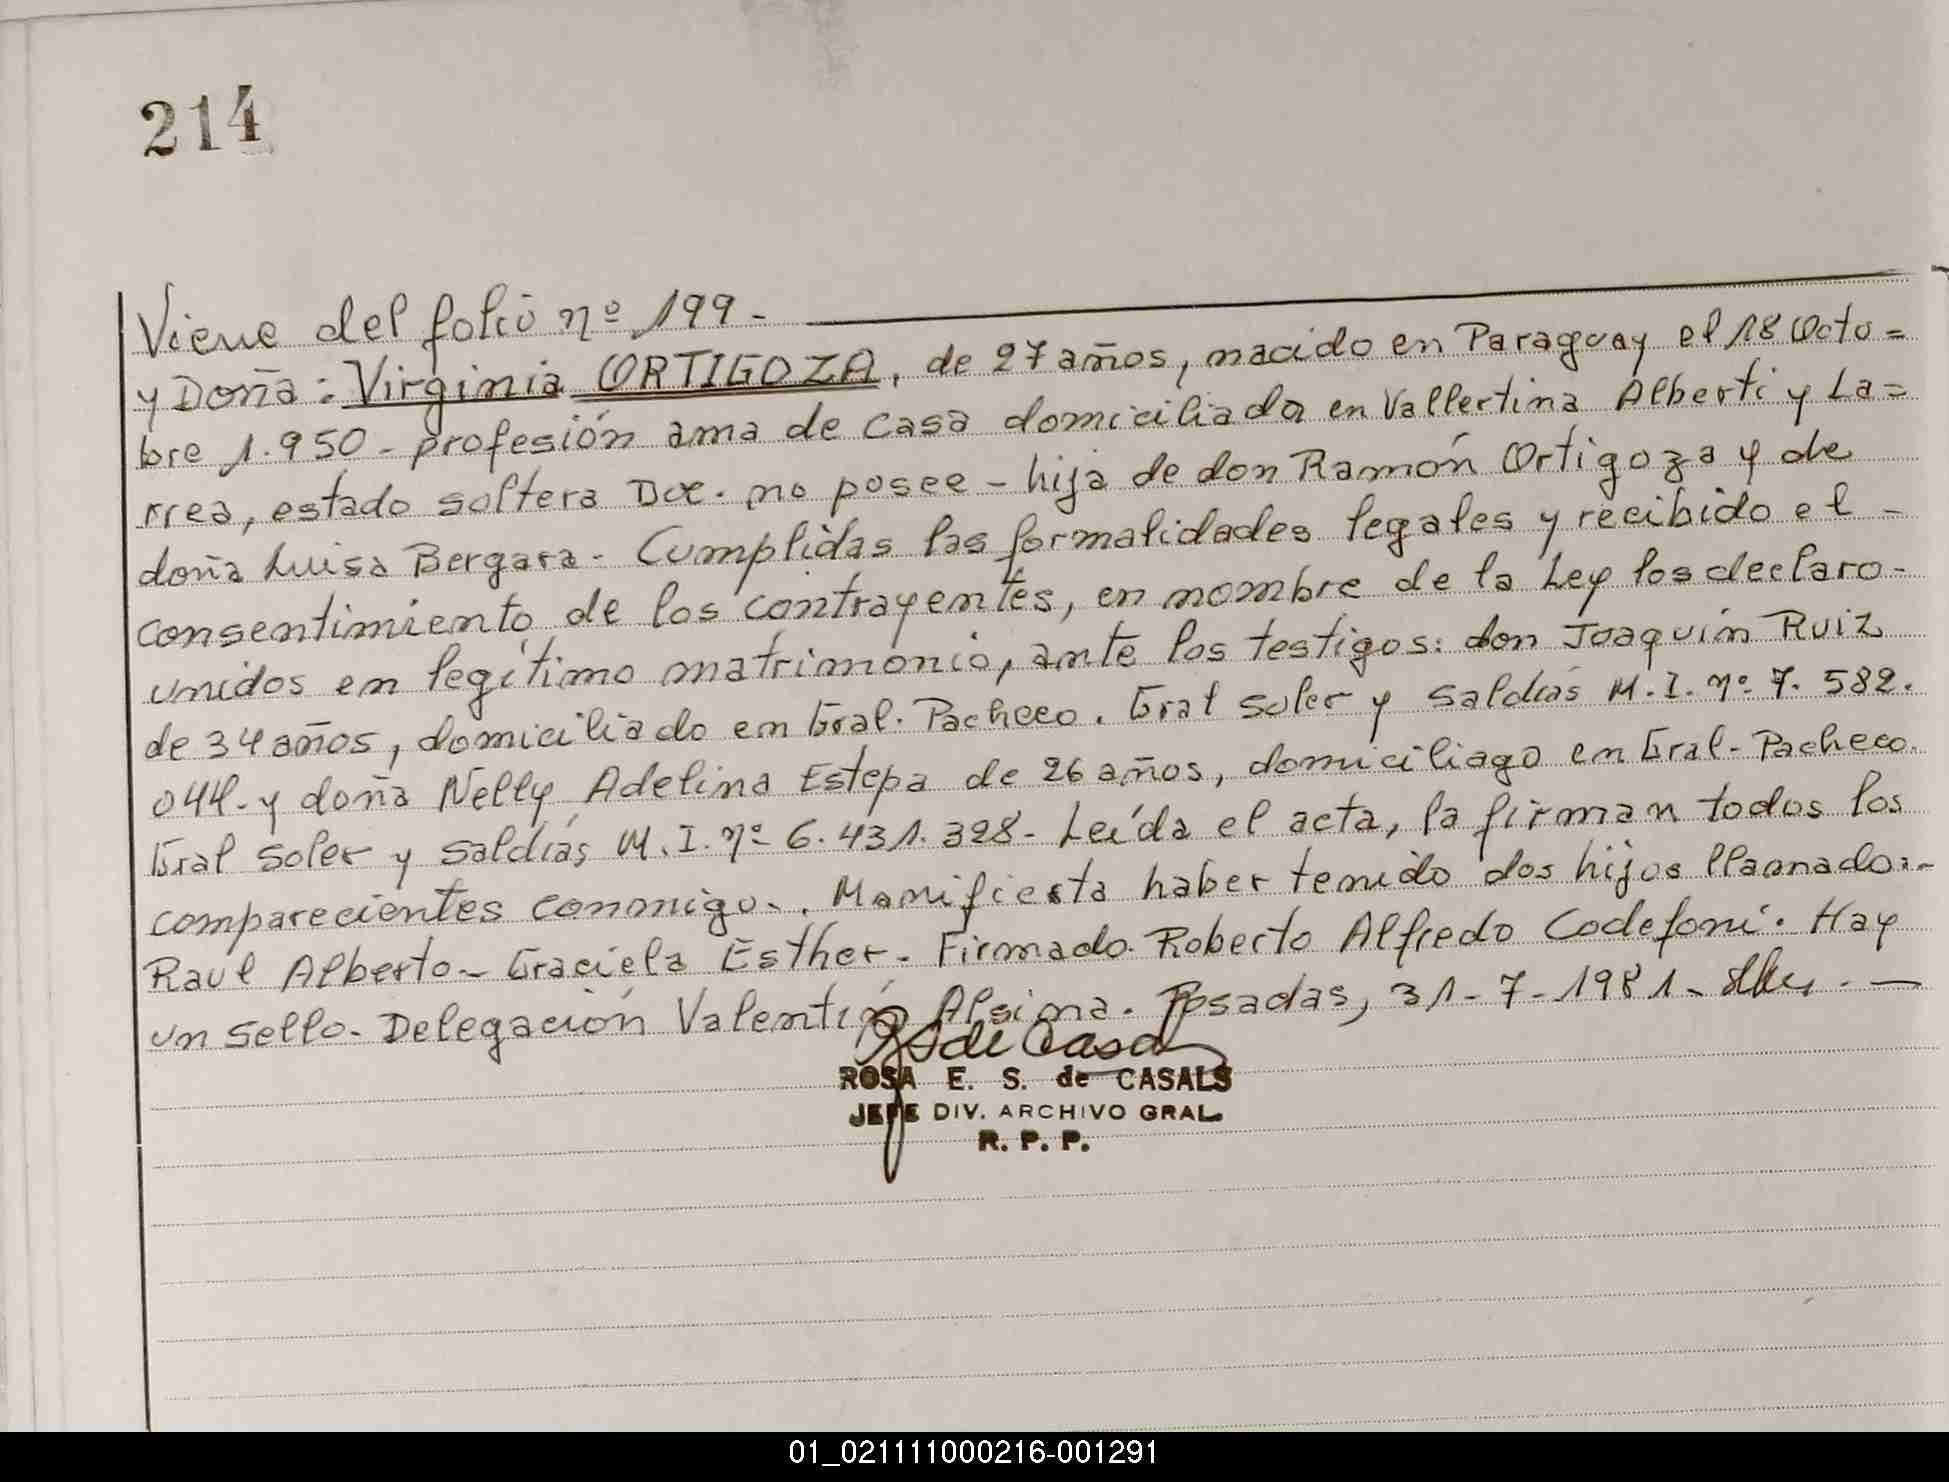 214
Viene del folio nº 199 -
y Doña: Virginia ORTIGOZA, de 27 años, nacido en Paraguay el 18 Octu=
bre 1.950 - profesión ama de casa domiciliada en Vallertina Alberti y La=
rrea, estado soltera Doc. no posee - hija de don Ramón Ortigoza y de
doña Luisa Bergara - Cumplidas las formalidades legales y recibido el -
consentimiento de los contrayentes, en nombre de la Ley los declaro -
unidos en legítimo matrimonio, ante los testigos: don Joaquín Ruiz
de 34 años, domiciliado en Gral. Pacheco. Gral Soler y Saldías M.I. nº 7. 582.
044 - y doña Nelly Adelina Estepa de 26 años, domiciliago en Gral - Pacheco.
Gral Soler y Saldías M.I. nº 6. 431. 328 - Leída el acta, la firman todos los
comparecientes conmigo. . Manifiesta haber tenido dos hijos llamado: -
Raul Alberto - Graciela Esther - Firmado. Roberto Alfredo Codefoni. Hay
un Sello - Delegación Valentín Alsina. Posadas, 31 - 7 - 1981 -
ROSA E. S. de CASALS
JEFE DIV. ARCHIVO GRAL.
R. P. P.
01_021111000216-001291